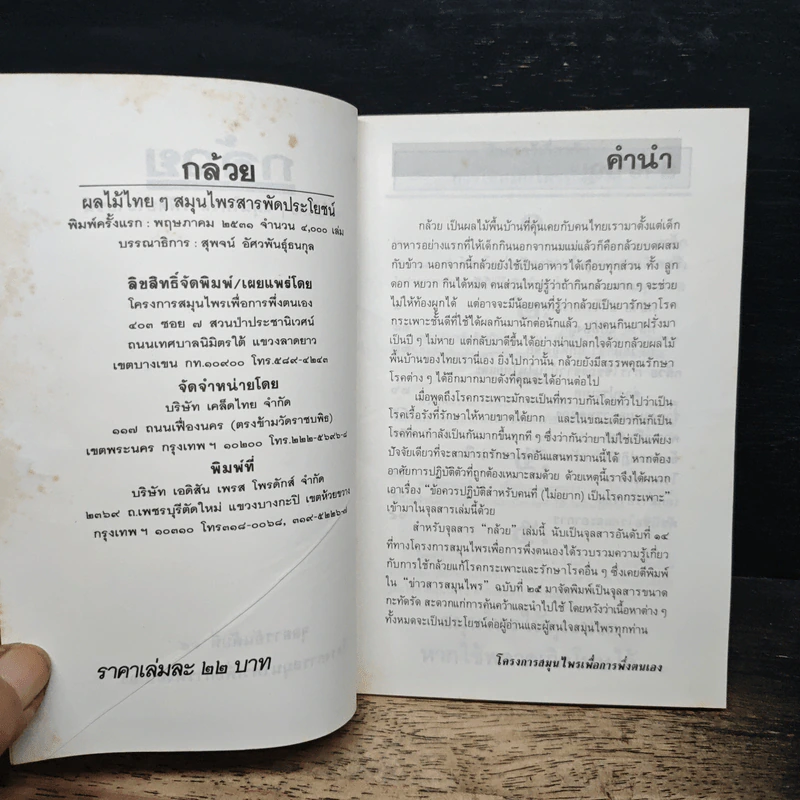 กล้วย
ผลไม้ไทย ๆ สมุนไพรสารพัดประโยชน์
พิมพ์ครั้งแรก : พฤษภาคม ๒๕๓๑ จำนวน ๔,๐๐๐ เล่ม
บรรณาธิการ : สุพจน์ อัศวพันธุ์ธนกุล
ลิขสิทธิ์จัดพิมพ์/เผยแพร่โดย
โครงการสมุนไพรเพื่อการพึ่งตนเอง
๔๐๓ ซอย ๗ สวนป่าประชานิเวศน์
ถนนเทศบาลนิมิตรใต้ แขวงลาดยาว
เขตบางเขน กท.๑๐๙๐๐ โทร.๕๘๙-๔๒๔๓
จัดจำหน่ายโดย
บริษัท เคล็ดไทย จำกัด
๑๑๗ ถนนเฟื่องนคร (ตรงข้ามวัดราชบพิธ)
เขตพระนคร กรุงเทพ ฯ ๑๐๒๐๐ โทร.๒๒๒-๕๖๙๖-๘
พิมพ์ที่
บริษัท เอดิสัน เพรส โพรดักส์ จำกัด
๒๓๖๙ ถ.เพชรบุรีตัดใหม่ แขวงบางกะปิ เขตห้วยขวาง
กรุงเทพ ฯ ๑๐๓๑๐ โทร๓๑๘-๐๐๖๘, ๓๑๙-๕๒๒๖-๗
ราคาเล่มละ ๒๒ บาท
คำนำ
กล้วย เป็นผลไม้พื้นบ้านที่คุ้นเคยกับคนไทยเรามาตั้งแต่เด็ก
อาหารอย่างแรกที่ให้เด็กกินนอกจากนมแม่แล้วก็คือกล้วยบดผสม
กับข้าว นอกจากนี้กล้วยยังใช้เป็นอาหารได้เกือบทุกส่วน ทั้ง ลูก
ดอก หยวก กินได้หมด คนส่วนใหญ่รู้ว่าถ้ากินกล้วยมาก ๆ จะช่วย
ไม่ให้ท้องผูกได้ แต่อาจจะมีน้อยคนที่รู้ว่ากล้วยเป็นยารักษาโรค
กระเพาะชั้นดีที่ใช้ได้ผลกันมานักต่อนักแล้ว บางคนกินยาฝรั่งมา
เป็นปี ๆ ไม่หาย แต่กลับมาดีขึ้นได้อย่างน่าแปลกใจด้วยกล้วยผลไม้
พื้นบ้านของไทยเรานี่เอง ยิ่งไปกว่านั้น กล้วยยังมีสรรพคุณรักษา
โรคต่าง ๆ ได้อีกมากมายดังที่คุณจะได้อ่านต่อไป
เมื่อพูดถึงโรคกระเพาะมักจะเป็นที่ทราบกันโดยทั่วไปว่าเป็น
โรคเรื้อรังที่รักษาให้หายขาดได้ยาก และในขณะเดียวกันก็เป็น
โรคที่คนกำลังเป็นกันมากขึ้นทุกที ๆ ซึ่งว่ากันว่ายาไม่ใช่เป็นเพียง
ปัจจัยเดียวที่จะสามารถรักษาโรคอันแสนทรมานนี้ได้ หากต้อง
อาศัยการปฏิบัติตัวที่ถูกต้องเหมาะสมด้วย ด้วยเหตุนี้เราจึงได้ผนวก
เอาเรื่อง “ข้อควรปฏิบัติสำหรับคนที่ (ไม่อยาก) เป็นโรคกระเพาะ”
เข้ามาในจุลสารเล่มนี้ด้วย
สำหรับจุลสาร “กล้วย” เล่มนี้ นับเป็นจุลสารอันดับที่ ๑๔
ที่ทางโครงการสมุนไพรเพื่อการพึ่งตนเองได้รวบรวมความรู้เกี่ยว
กับการใช้กล้วยแก้โรคกระเพาะและรักษาโรคอื่น ๆ ซึ่งเคยตีพิมพ์
ใน “ข่าวสารสมุนไพร” ฉบับที่ ๒๕ มาจัดพิมพ์เป็นจุลสารขนาด
กะทัดรัด สะดวกแก่การค้นคว้าและนำไปใช้ โดยหวังว่าเนื้อหาต่าง ๆ
ทั้งหมดจะเป็นประโยชน์ต่อผู้อ่านและผู้สนใจสมุนไพรทุกท่าน
โครงการสมุนไพรเพื่อการพึ่งตนเอง